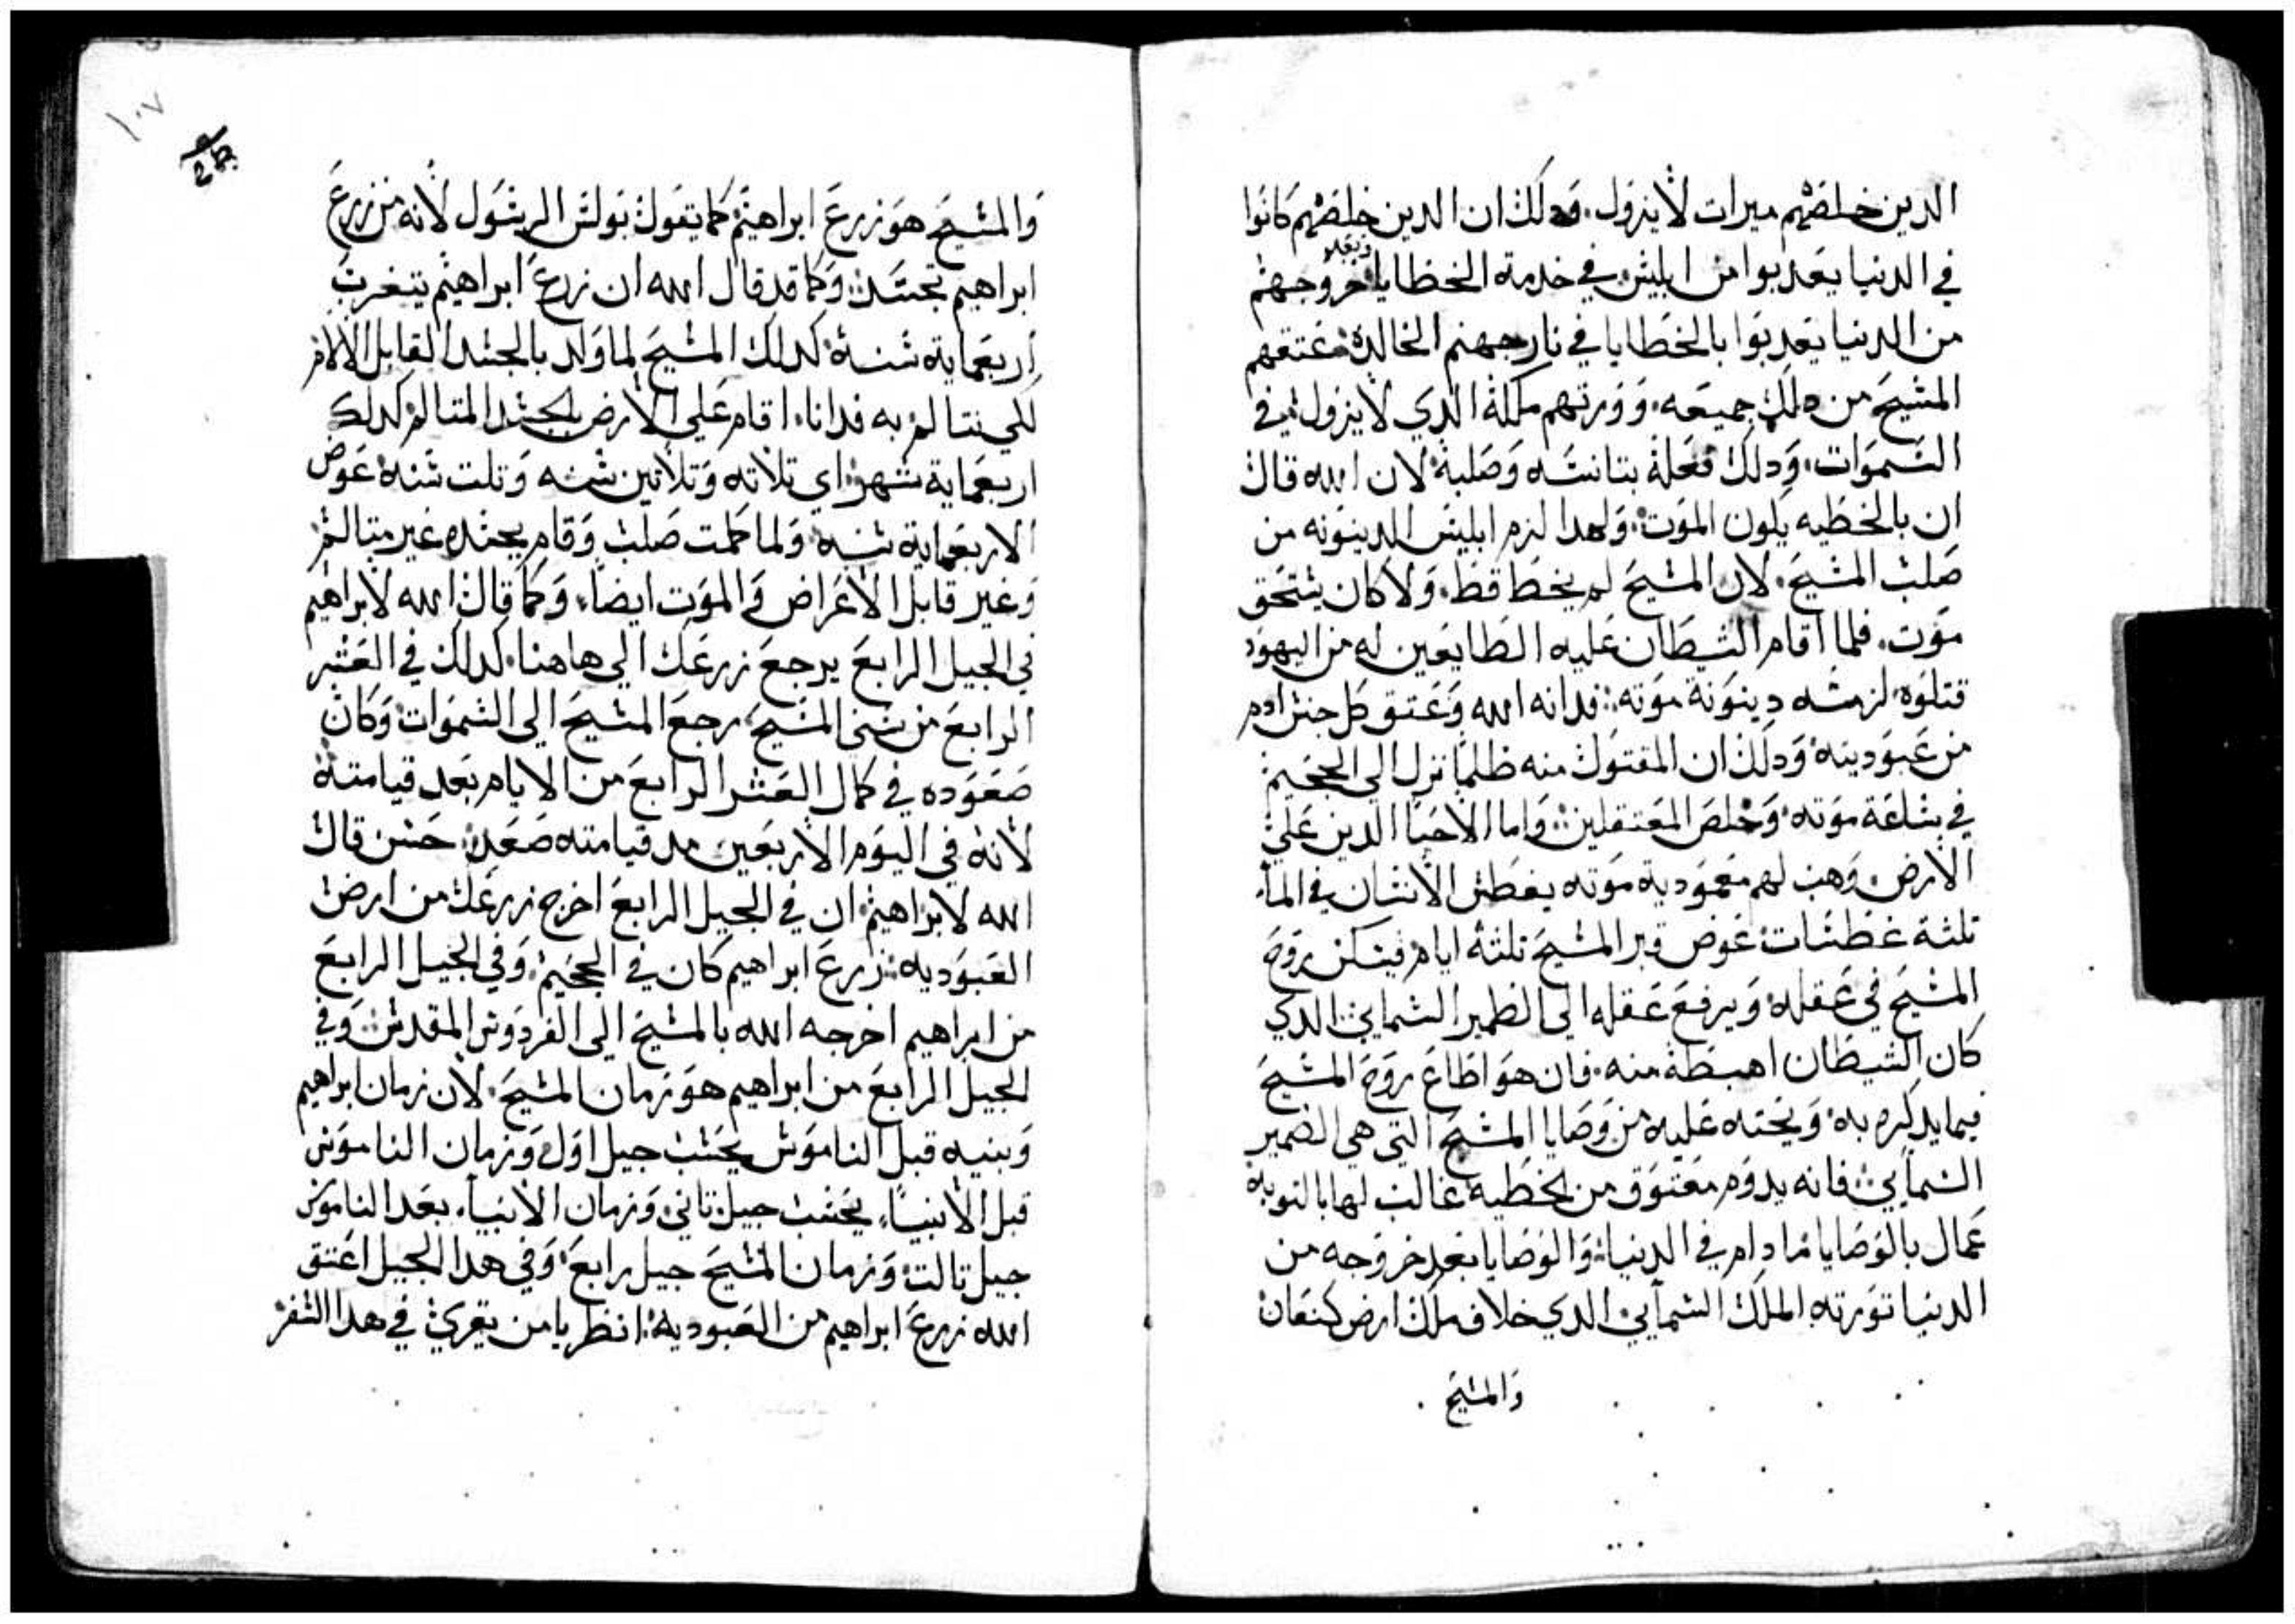 الدين خلصهم ميرات لا يزول. ودلك ان الدين خلصهم كانوا
في الدنيا يعدبوا من ابليس في خدمة الخطايا وبعد خروجهم
من الدنيا يعدبوا بالخطايا في نار جهنم الخالدة فعتقهم
المسيح من دلك جميعه. وورتهم ملكه الدي لا يزول في
السموات. ودلك فعله بتانسه وصلبه لان الله قال
ان بالخطيه يكون الموت. ولهدا لزم ابليس الدينونه من
صلب المسيح. لان المسيح لم يخط قط. ولا كان يستحق
موت. فلما اقام الشيطان عليه الطايعين له من اليهود
قتلوه لزمته دينونة موته. فدانه الله وعتق كل جنس ادم
من عبوديته ودلك ان المقتول منه ظلما نزل الي الجحيم
في ساعة موته وخلص المعتقلين. واما الاحيا الدين علي
الارض. وهب لهم معمودية موته يغطس الانسان في الماء
تلتة غطسات عوض قبر المسيح تلتة ايام فيسكن روح
المسيح في عقله ويرفع عقله الي الضمير السمايي الدي
كان الشيطان اهبطه منه. فان هو اطاع روح المسيح
فيما يدكره به ويحته عليه من وصايا المسيح التي هي الضمير
السمايي فانه يدوم معتوق من الخطيه غالب لها بالتوبة
عمال بالوصايا ما دام في الدنيا. والوصايا بعد خروجه من
الدنيا تورته الملك السمايي الدي خلاف ملك ارض كنعان
والمسيح
١٠٧
والمسيح هو زرع ابراهيم كما يقول بولس الرسول لانه من زرع
ابراهيم تجسد. وكما قد قال الله ان زرع ابراهيم يتغرب
اربعماية سنة كدلك المسيح لما ولد بالجسد القابل الالام
لكي يتالم به فدانا. اقام علي الارض بالجسد المتالم كدلك
اربعماية شهر اي تلاته وتلاتين سنه وتلت سنة عوض
الاربعماية سنه ولما كملت صلب وقام بجسده غير متالم
وغير قابل الاعراض والموت ايضا. وكما قال الله لابراهيم
في الجيل الرابع يرجع زرعك الي هاهنا. كدلك في العشر
الرابع من سني المسيح رجع المسيح الي السموات وكان
صعوده في كمال العشر الرابع من الايام بعد قيامته
لانه في اليوم الاربعين مد قيامته صعد. حسن قال
الله لابراهيم ان في الجيل الرابع اخرج زرعك من ارض
العبوديه. زرع ابراهيم كان في الجحيم. وفي الجيل الرابع
من ابراهيم اخرجه الله بالمسيح الي الفردوس المقدس وفي
الجيل الرابع من ابراهيم هو زمان المسيح. لان زمان ابراهيم
وبنيه قبل الناموس يحسب جيل اول وزمان الناموس
قبل الانبياء يحسب جيل تاني وزمان الانبياء بعد الناموس
جيل تالت وزمان المسيح جيل رابع وفي هدا الجيل اعتق
الله زرع ابراهيم من العبودية. انظر يا من يقري في هدا السفر